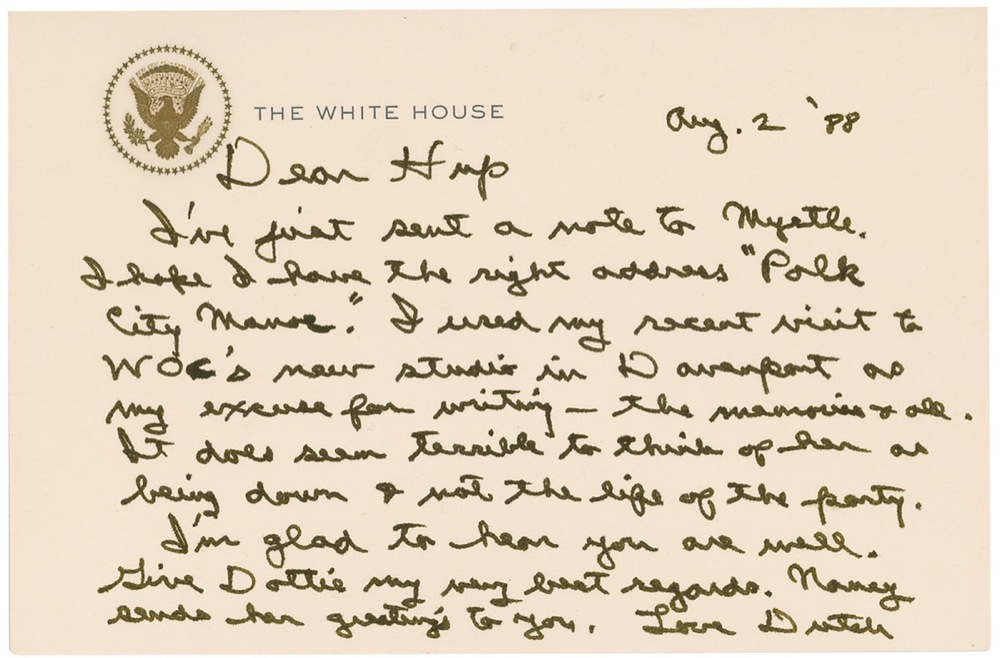 THE WHITE HOUSE
Aug. 2 '88
Dear Hup
I've just sent a note to Myrtle.
I hope I have the right address "Polk
City Manor." I used my recent visit to
WOC's new studio in Davenport as
my excuse for writing – the memories & all.
It does seem terrible to think of her as
being down & not the life of the party.
I'm glad to hear you are well.
Give Dottie my very best regards. Nancy
sends her greeting's to you. Love Dutch